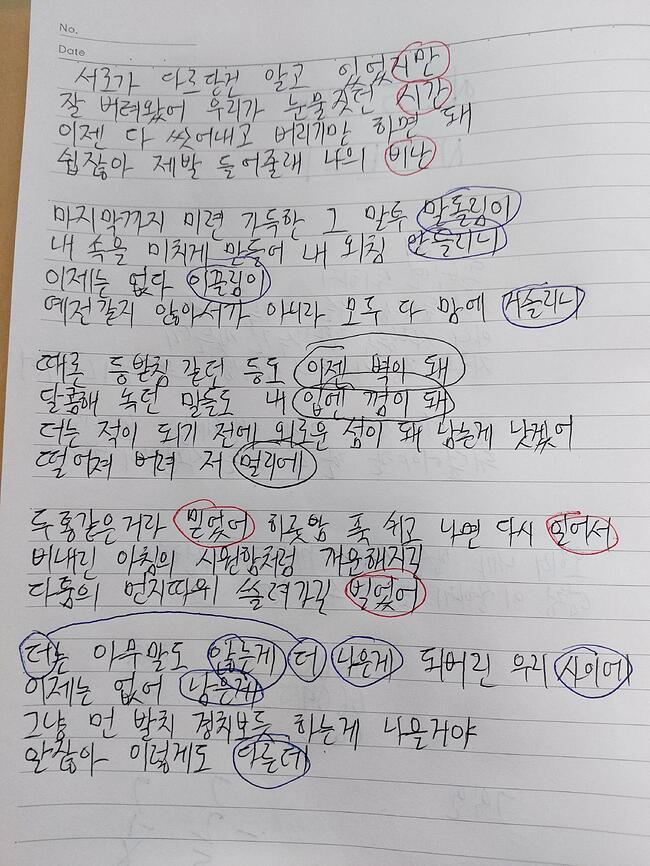 No.
Date
서로가 다르단건 알고 있었지만
잘 버려왔어 우리가 눈물짓던 시간
이젠 다 씻어내고 버리기만 하면 돼
쉽잖아 제발 들어줄래 나의 비나
마지막까지 미련 가득한 그 말투 말돌림이
내 속을 미치게 만들어 내 외침 안들리니
이제는 없다 이끌림이
예전같지 않아서가 아니라 모두 다 맘에 거슬리니
때론 등받침 같던 등도 이젠 벽이 돼
달콤해 녹던 말들도 내 입엔 껌이 돼
너는 적이 되기 전에 외로운 섬이 돼 남는게 낫겠어
떨어져 버려 저 멀리에
두통같은거라 믿었어 하룻밤 푹 쉬고 나면 다시 일어서
비내린 아침의 시원함처럼 개운해지길
다툼의 먼지따위 쓸려가길 빌었어
더는 아무말도 않는게 더 나은게 되버린 우리 사이에
이제는 없어 남은게
그냥 먼 발치 경치보듯 하는게 나을거야
왔잖아 이렇게도 다른데